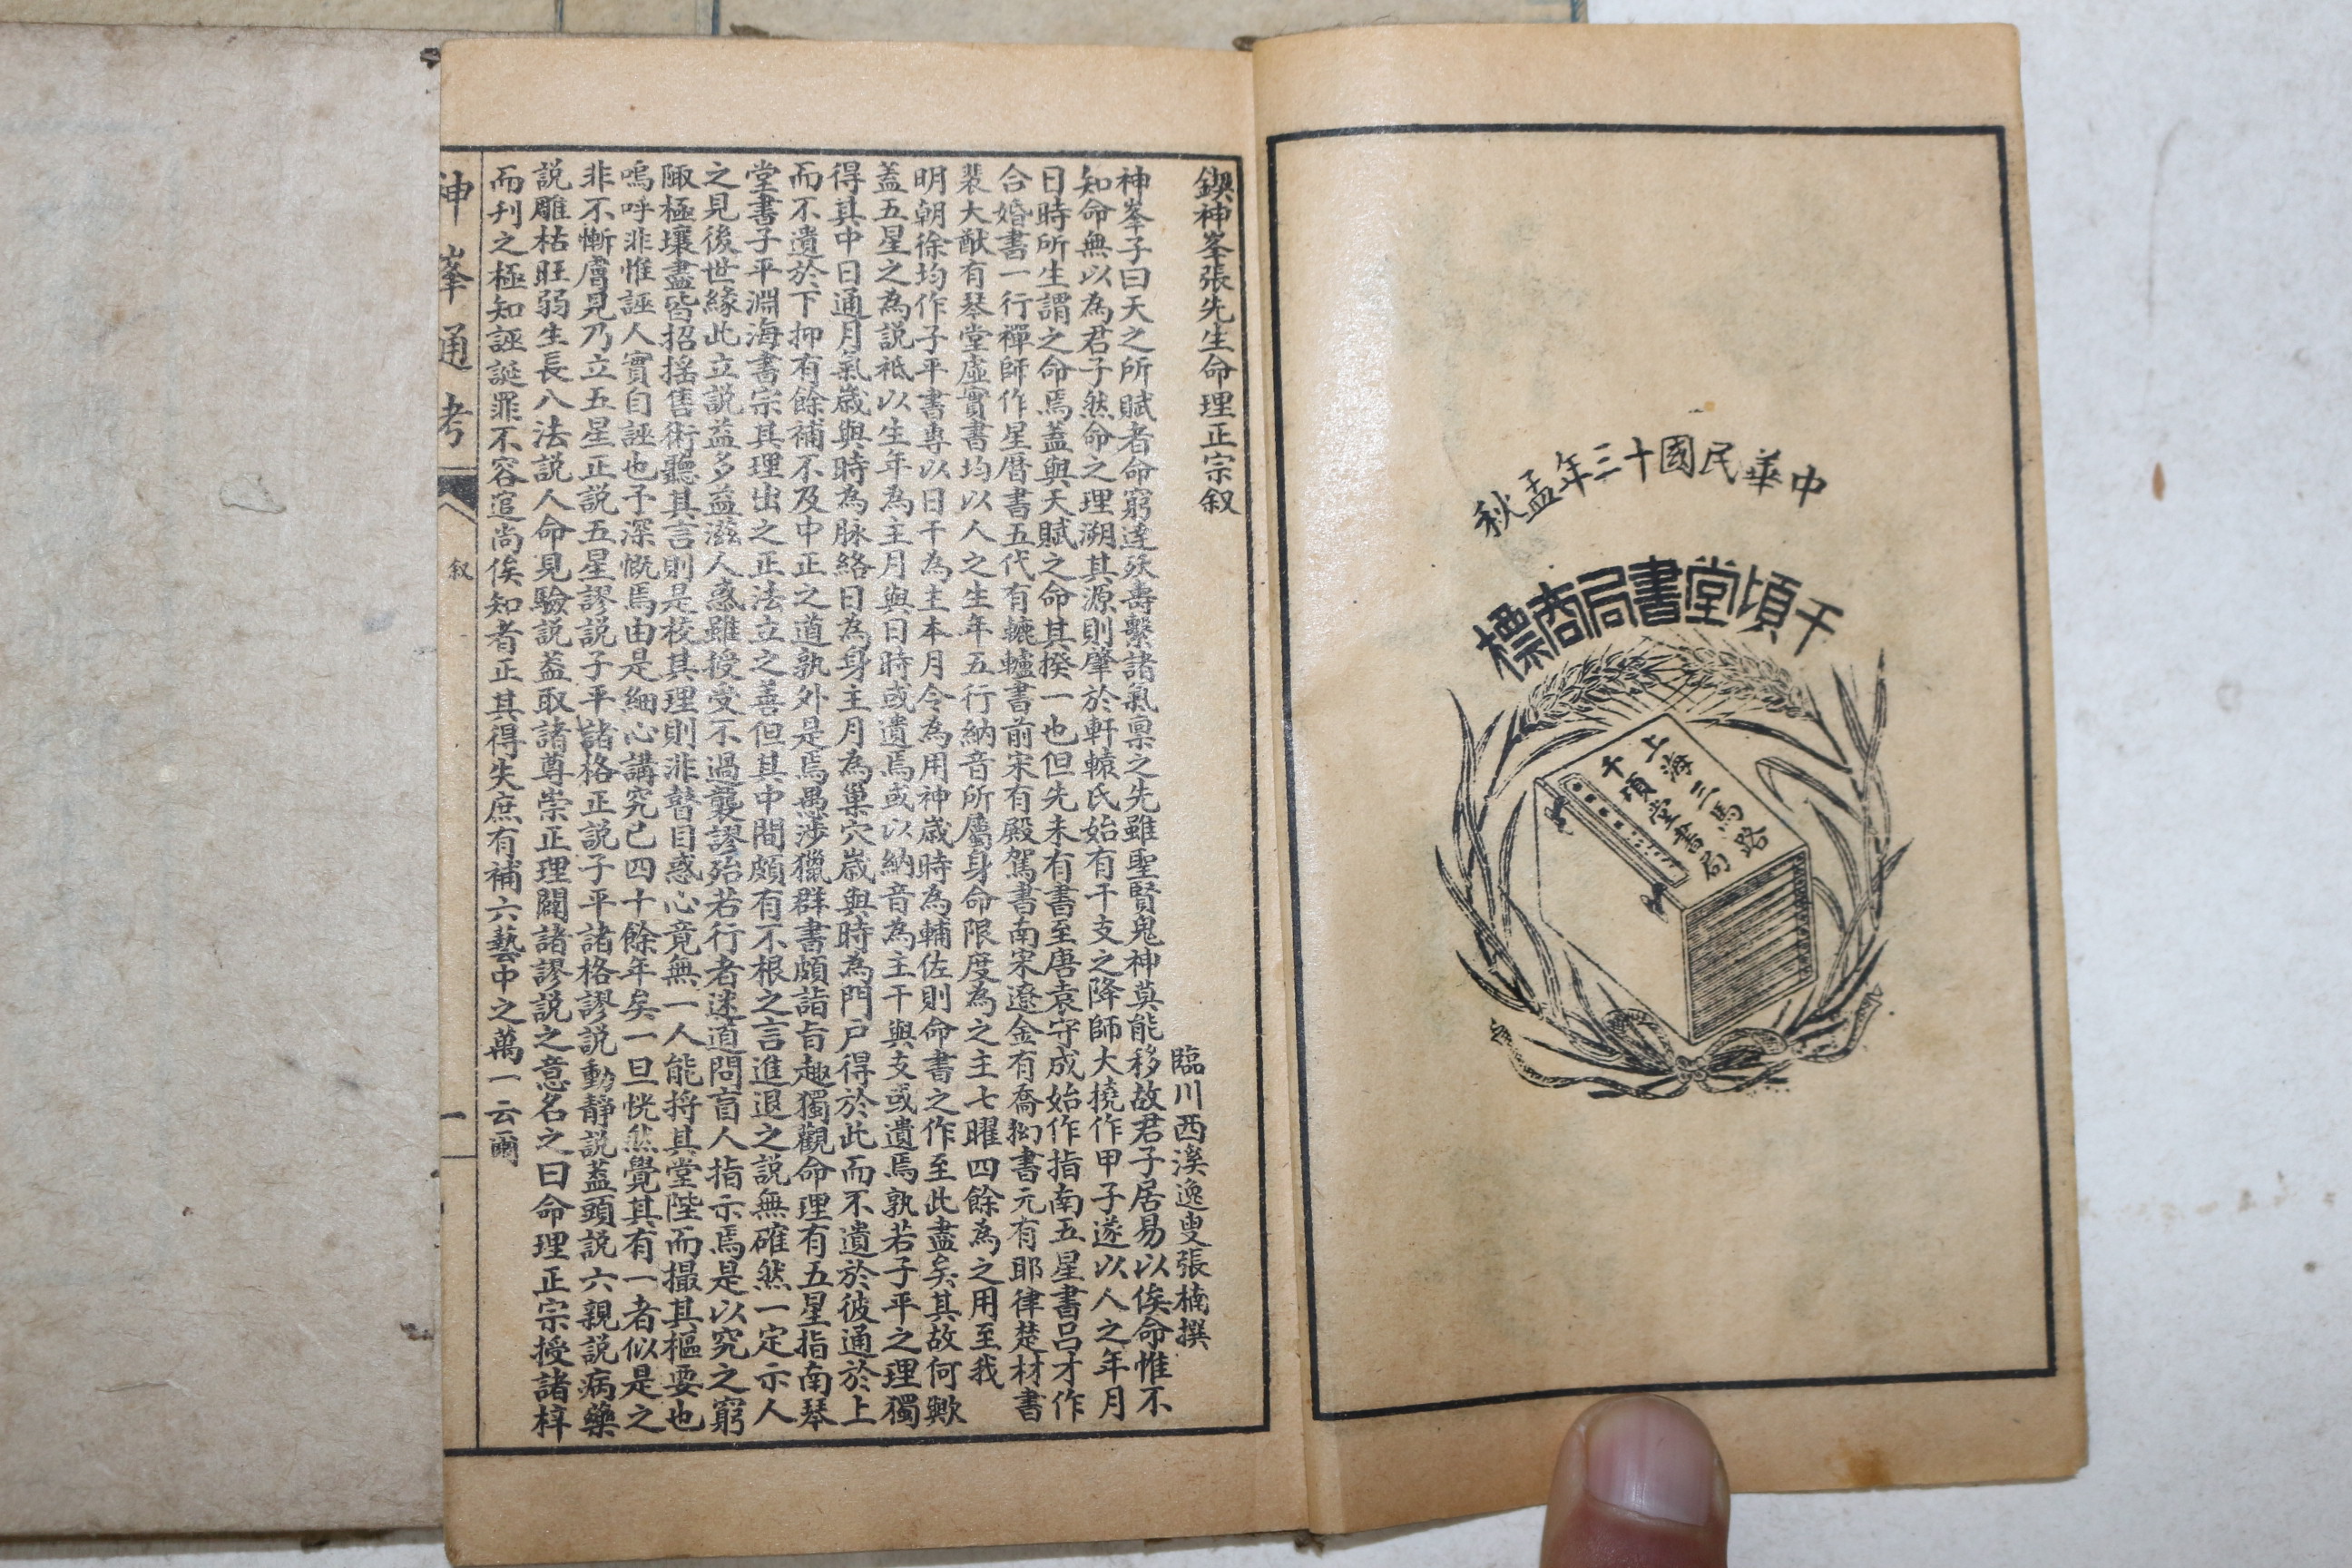 中華民國十三年孟秋
千頃堂書局商標
上海三馬路
千頃堂書局
鍥神峯張先生命理正宗叙
臨川西溪逸叟張楠撰
神峯子曰天之所賦者命窮達殀壽繫諸氣禀之先雖聖賢鬼神莫能移故君子居易以俟命惟不
知命無以為君子然命之理溯其源則肇於軒轅氏始有干支之降師大撓作甲子遂以人之年月
日時所生謂之命焉蓋與天賦之命其揆一也但先未有書至唐袁守成始作指南五星書呂才作
合婚書一行禪師作星曆書五代有轆轤書前宋有殿駕書南宋遼金有喬拗書元有耶律楚材書
裴大猷有琴堂虛實書均以人之生年五行納音所屬身命限度為之主七曜四餘為之用至我
明朝徐均作子平書專以日干為主本月令為用神歲時為輔佐則命書之作至此盡矣其故何歟
蓋五星之為説袛以生年為主月與日時或遺焉或以納音為主干與支或遺焉孰若子平之理獨
得其中日通月氣歲與時為脉絡日為身主月為巢穴歲與時為門戸得於此而不遺於彼通於上
而不遺於下抑有餘補不及中正之道孰外是焉愚涉獵群書頗詣旨趣獨觀命理有五星指南琴
堂書子平淵海書宗其理出之正法立之善但其中間頗有不根之言進退之説無確然一定示人
之見後世緣此立説益多益滋人惑雖授受不過襲謬殆若行者迷道問盲人指示焉是以究之窮
陬極壤盡皆招搖售術聽其言則是校其理則非瞽目惑心竟無一人能捋其堂陛而撮其樞要也
嗚呼非惟誣人實自誣也予深慨焉由是細心講究已四十餘年矣一旦恍然覺其有一者似是之
非不慚膚見乃立五星正説五星謬説子平諸格正説子平諸格謬説動靜説蓋頭説六親説病藥
説雕枯旺弱生長八法説人命見驗説蓋取諸尊崇正理闢諸謬説之意名之曰命理正宗授諸梓
而刋之極知誣誕罪不容逭尚俟知者正其得失庶有補六藝中之萬一云爾
神峯通考
叙
一